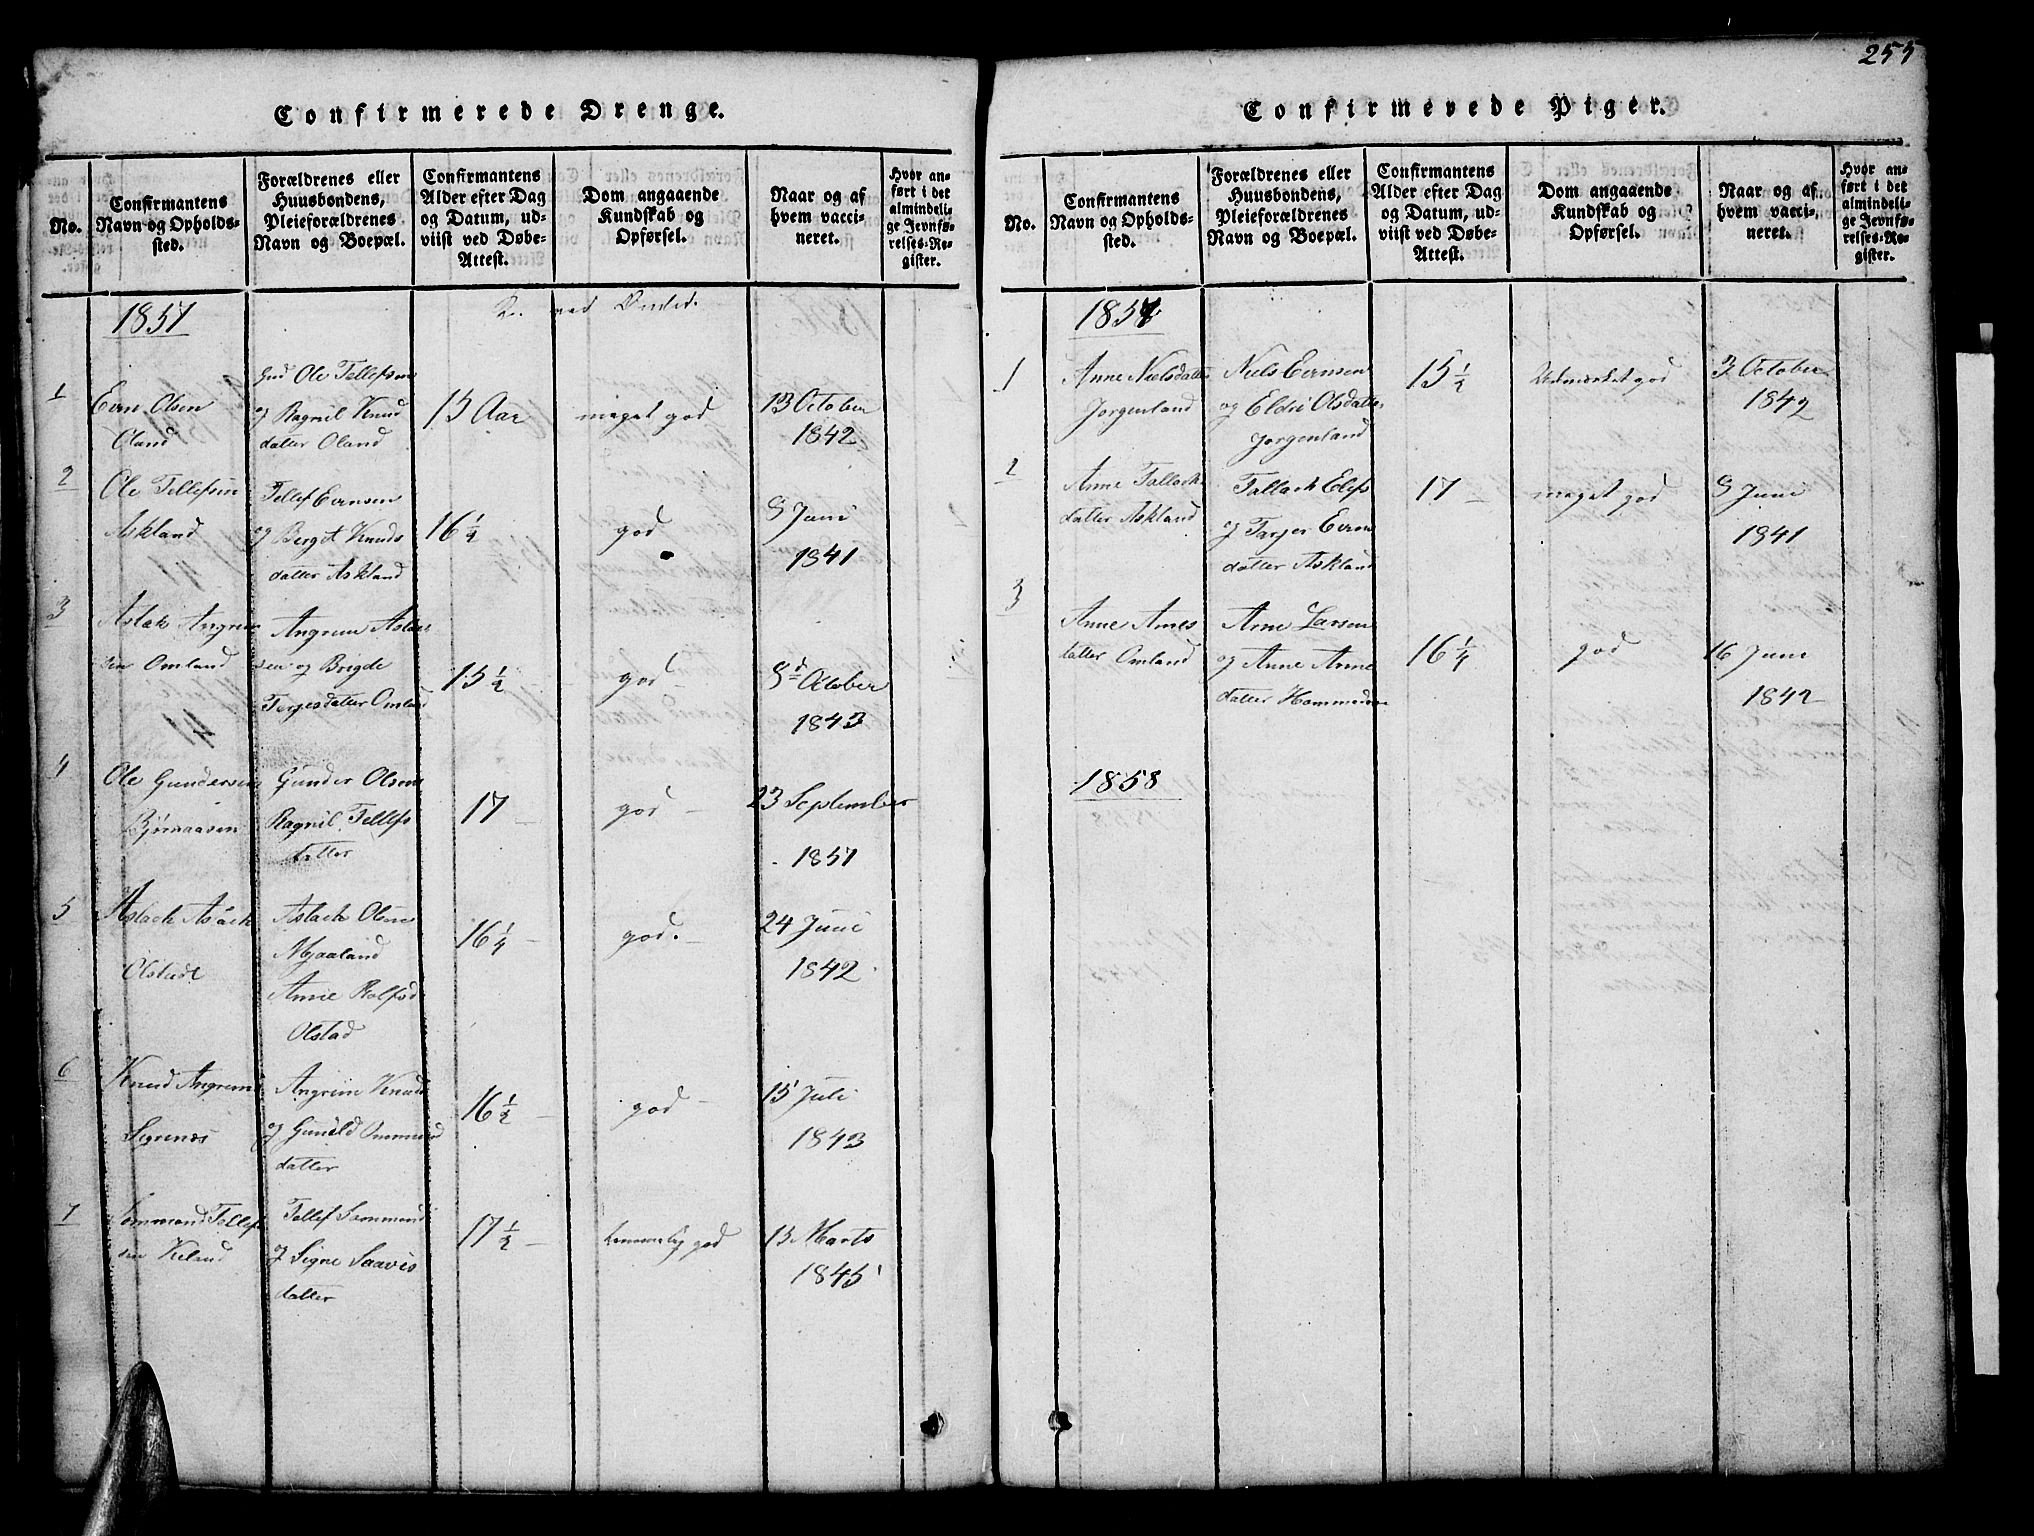 255
Confirmerede Drenge.
No.
Confirmantens
Navn og Opholds-
sted.
Forældrenes eller
Huusbondens,
Pleieforældrenes
Navn og Boepæl.
Confirmantens
Alder efter Dag
og Datum, ud-
viist ved Døbe-
Attest.
Dom angaaende
Kundskab og
Opførsel.
Naar og af
hvem vacci-
neret.
Hvor an-
ført i det
almindeli-
ge Jevnfø-
relses-Re-
gister.
1857
ved Omled.
1
Even Olsen
Oland
Gmd Ole Tellefsen
og Ragnil Knud
datter Oland
15 Aar
meget god
13 October
1842
2
Ole Tellefsen
Askland
Tellef Evensen
og Berget Knuds
datter Askland
16 1/2
god
9 Juni
1841
3
Aslak Angrim
sen Omland
Angrim Aslak
sen og Brigde
Terjesdatter Omland
15 1/2 -
god
9d October
1843
4
Ole Gundersen
Bjørnaasen
Gunder Olsen
Ragnil Tellefs
datter
17 -
god -
23 September
1857
5
Aslack Aslack
Olstad
Aslack Olsen
Mjaaland
Anne Rolfsd
Olstad
16 1/4 -
god. -
24 Juni
1842
6
Knud Angrims
Sigrenæs
Angrim Knuds
og Gunild Ommund
datter
16 1/2 -
god -
15 Juli
1843
7
Sommond Tellef
sen Kielnd
Tellef Sommond
og Signe Saavis
datter
17 1/2 -
temmelig god
13 Marts
1845
Confirmerede Piger.
No.
Confirmantens
Navn og Opholds-
sted.
Forældrenes eller
Huusbondens,
Pleieforældrenes
Navn og Boepæl.
Confirmantens
Alder efter Dag
og Datum, ud-
viist ved Døbe-
Attest.
Dom angaaende
Kundskab og
Opførsel.
Naar og af
hvem vacci-
neret.
Hvor an-
ført i det
almindeli-
ge Jevnfø-
relses-Re-
gister.
1857
1
Anne Nielsdatter
Jorgenland
Niels Evensen
og Eldri Olsdatter
Jorgenland
15 1/2
Udmærket god
3 October
1842
2
Anne Tallack
datter Askland
Tallack Elefs
og Tarjer Even
datter Askland
17 -
meget god
9 Juni
1841
3
Anne Arnes
datter Omland
Arne Larsen
og Anne Arne
datter
16 1/4
god
16 Juni
1842
1858